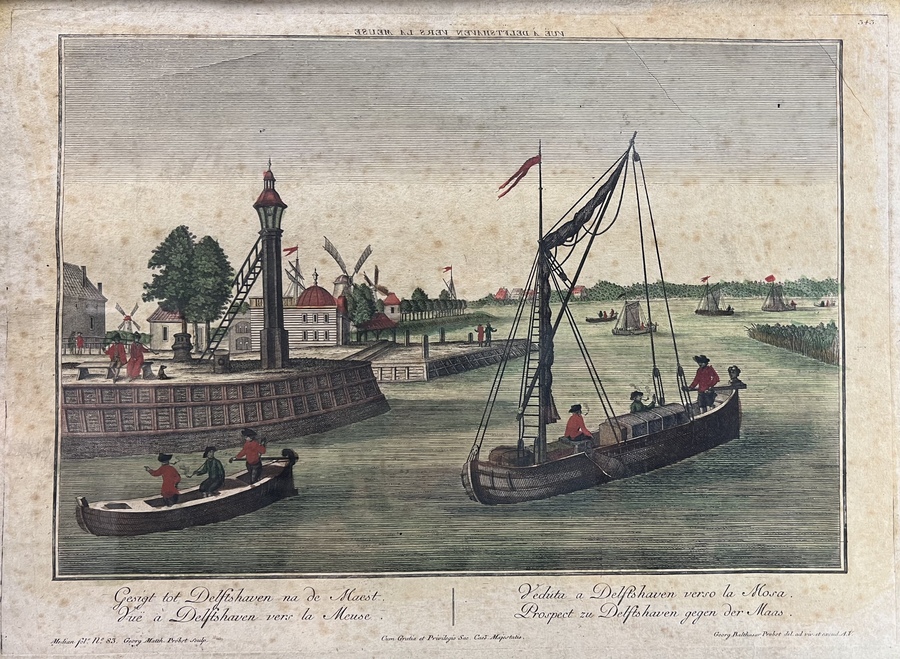 VUE À DELFTSHAVEN VERS LA MEUSE.
343.
Gesigt tot Delftshaven na de Maest.
Vüe à Delftshaven vers la Meuse.
Veduta a Delftshaven verso la Mosa.
Prospect zu Delftshaven gegen der Maas.
Median fol. No. 83. Georg Matth. Probst sculp.
Cum Gratia et Privilegio Sac. Caes. Majestatis.
Georg Balthasar Probst del. ad viv. et excud. A.V.